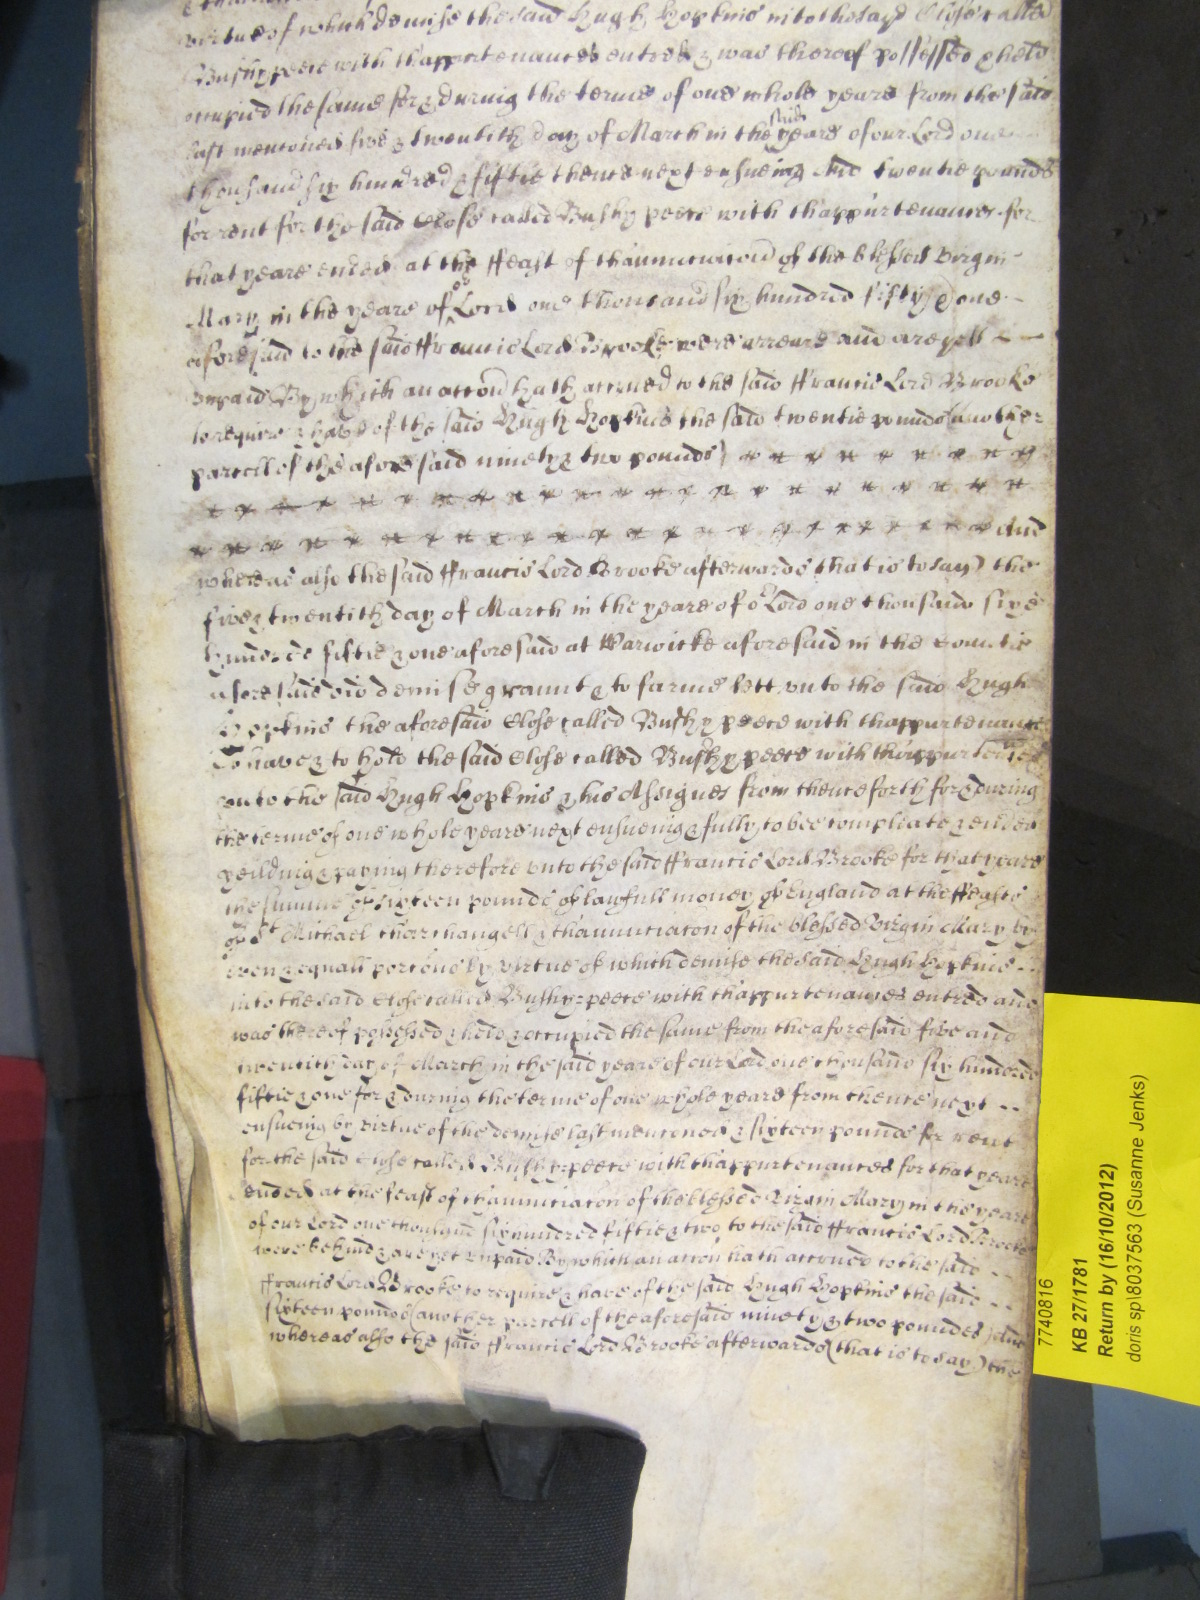 virtue of which demise the said Hugh Hopkins into the sayd Close called
Bushy peece with thappurtenances entred & was thereof possessed & held
occupied the same for & during the terme of one whole yeare from the said
last mentioned five & twentith day of March in the said yeare of our Lord one
thousand six hundred & fiftie thence next ensueing And twentie pounds
for rent for the said Close called Bushy peece with thappurtenances for
that yeare ended at the ffeast of thannunciacion of the blessed Virgin
Mary in the yeare of or Lord one thousand six hundred fifty & one
aforesaid to the said ffrancis Lord Brooke were arreare and are yett
unpaid By which an accon hath accrued to the said ffrancis Lord Brooke
to require & have of the said Hugh Hopkins the said twentie pounds (another
parcell of the aforesaid ninety & two pounds)
And
whereas also the said ffrancis Lord Brooke afterwards that is to say) the
five & twentith day of March in the yeare of or Lord one thousand sixe
hundred fiftie & one aforesaid at Warwicke aforesaid in the Countie
aforesaid did demise graunt & to farme lett unto the said Hugh
Hopkins the aforesaid Close called Bushy peece with thappurtenance
To have & to hold the said Close called Bushy peece with thappurtences
unto the said Hugh Hopkins & his Assignes from thenceforth for & during
the terme of one whole yeare next ensueing & fully to bee compleate & ended
yeilding & paying therefore unto the said ffrancis Lord Brooke for that yeare
the summe of sixteen pounds of lawfull money of England at the ffeasts
of St Michael tharchangell & thannunciacon of the blessed Virgin Mary by
even & equall porcons by virtue of which demise the said Hugh Hopkins
into the said Close called Bushy=peece with thappurtenances entred and
was thereof possessed & held & occupied the same from the aforesaid five and
twentith day of March in the said yeare of our Lord one thousand six hundred
fiftie & one for & during the terme of one whole yeare from thence next
ensueing by virtue of the demise last mentioned & sixteen pounds for rent
for the said Close called Bushy=peece with thappurtenances for that yeare
ended at the feast of thannunciacon of the blessed Virgin Mary in the yeare
of our Lord one thousand six hundred fiftie & two to the said ffrancis Lord Brooke
were behind & are yet unpaid By which an accon hath accrued to the said
ffrancis Lord Brooke to require & have of the said Hugh Hopkins the said
sixteen pounds (another parcell of the aforesaid ninety & two pounds) And
whereas also the said ffrancis Lord Brooke afterwards (that is to say) the
7740816
KB 27/1781
Return by (16/10/2012)
doris sp\8037563 (Susanne Jenks)